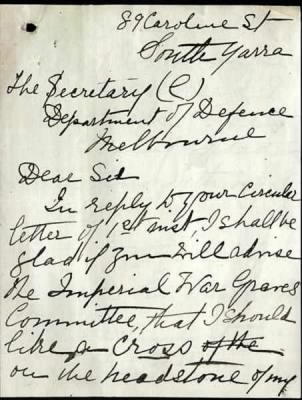 89 Caroline St
South Yarra
The Secretary (C)
Department of Defence
Melbourne
Dear Sir
In reply to your Circular
letter of 1st inst, I shall be
glad if you will advise
the Imperial War Graves
Committee, that I should
like a Cross of the
on the headstone of my